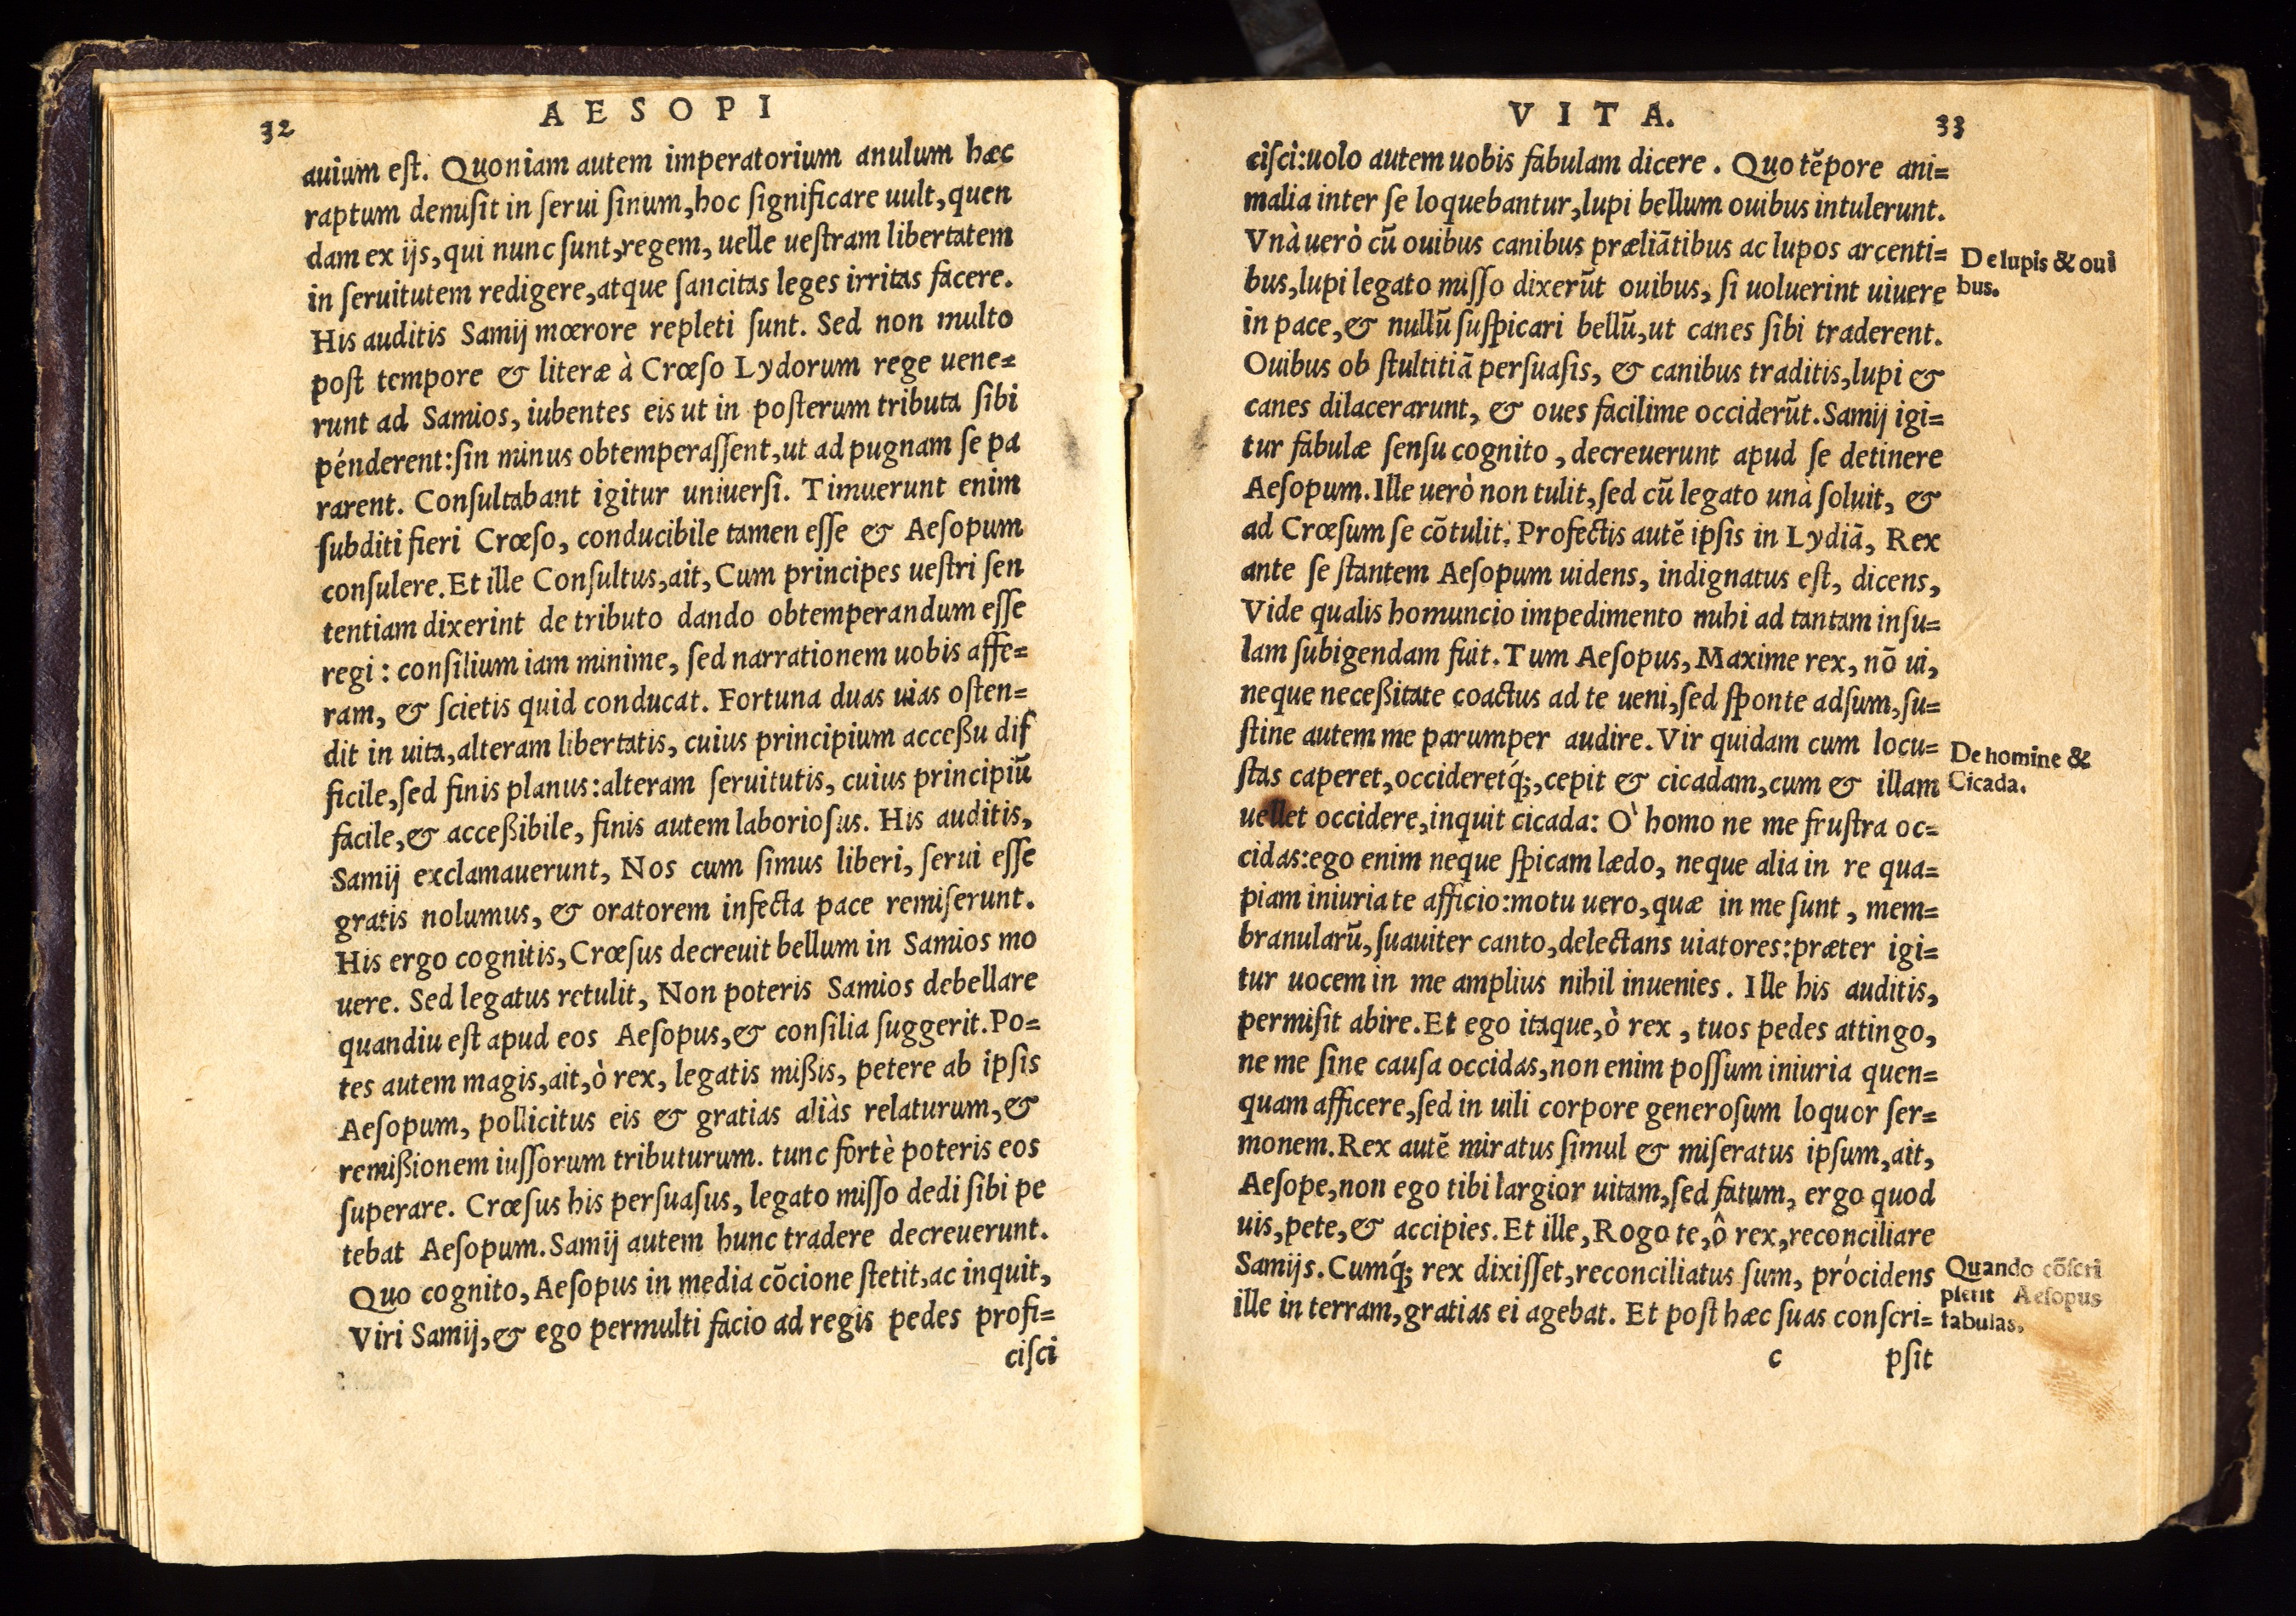 32
AESOPI
auium eſt. Quoniam autem imperatorium anulum hæc
raptum demiſit in ſerui ſinum, hoc ſignificare uult, quen
dam ex ijs, qui nunc ſunt, regem, uelle ueſtram libertatem
in ſeruitutem redigere, atque ſancitas leges irritas facere.
His auditis Samij mœrore repleti ſunt. Sed non multo
poſt tempore & literæ à Crœſo Lydorum rege uene=
runt ad Samios, iubentes eis ut in poſterum tributa ſibi
pénderent: ſin minus obtemperaſſent, ut ad pugnam ſe pa
rarent. Conſultabant igitur uniuerſi. Timuerunt enim
ſubditi fieri Crœſo, conducibile tamen eſſe & Aeſopum
conſulere. Et ille Conſultus, ait, Cum principes ueſtri ſen
tentiam dixerint de tributo dando obtemperandum eſſe
regi: conſilium iam minime, ſed narrationem uobis affe=
ram, & ſcietis quid conducat. Fortuna duas uias oſten=
dit in uita, alteram libertatis, cuius principium acceßu dif
ficile, ſed finis planus: alteram ſeruitutis, cuius principiũ
facile, & acceßibile, finis autem laborioſus. His auditis,
Samij exclamauerunt, Nos cum ſimus liberi, ſerui eſſe
gratis nolumus, & oratorem infecta pace remiſerunt.
His ergo cognitis, Crœſus decreuit bellum in Samios mo
uere. Sed legatus retulit, Non poteris Samios debellare
quandiu eſt apud eos Aeſopus, & conſilia ſuggerit. Po=
tes autem magis, ait, ò rex, legatis mißis, petere ab ipſis
Aeſopum, pollicitus eis & gratias aliàs relaturum, &
remißionem iuſſorum tributurum. tunc fortè poteris eos
ſuperare. Crœſus his perſuaſus, legato miſſo dedi ſibi pe
tebat Aeſopum. Samij autem hunc tradere decreuerunt.
Quo cognito, Aeſopus in media cõcione ſtetit, ac inquit,
Viri Samij, & ego permulti facio ad regis pedes profi=
ciſci
VITA.
33
ciſci: uolo autem uobis fabulam dicere. Quo tẽpore ani=
malia inter ſe loquebantur, lupi bellum ouibus intulerunt.
Vnà uerò cũ ouibus canibus præliãtibus ac lupos arcenti=
bus, lupi legato miſſo dixerũt ouibus, ſi uoluerint uiuere
in pace, & nullũ ſuſpicari bellũ, ut canes ſibi traderent.
Ouibus ob ſtultitiã perſuaſis, & canibus traditis, lupi &
canes dilacerarunt, & oues facilime occiderũt. Samij igi=
tur fabulæ ſenſu cognito, decreuerunt apud ſe detinere
Aeſopum. Ille uerò non tulit, ſed cũ legato unà ſoluit, &
ad Crœſum ſe cõtulit. Profectis autẽ ipſis in Lydiã, Rex
ante ſe ſtantem Aeſopum uidens, indignatus eſt, dicens,
Vide qualis homuncio impedimento mihi ad tantam inſu=
lam ſubigendam fuit. Tum Aeſopus, Maxime rex, nõ ui,
neque neceßitate coactus ad te ueni, ſed ſponte adſum, ſu=
ſtine autem me parumper audire. Vir quidam cum locu=
ſtas caperet, occideretq́;, cepit & cicadam, cum & illam
uellet occidere, inquit cicada: O' homo ne me fruſtra oc=
cidas: ego enim neque ſpicam lædo, neque alia in re qua=
piam iniuria te afficio: motu uero, quæ in me ſunt, mem=
branularũ, ſuauiter canto, delectans uiatores: præter igi=
tur uocem in me amplius nihil inuenies. Ille his auditis,
permiſit abire. Et ego itaque, ò rex, tuos pedes attingo,
ne me ſine cauſa occidas, non enim poſſum iniuria quen=
quam afficere, ſed in uili corpore generoſum loquor ſer=
monem. Rex autẽ miratus ſimul & miſeratus ipſum, ait,
Aeſope, non ego tibi largior uitam, ſed fatum, ergo quod
uis, pete, & accipies. Et ille, Rogo te, ô rex, reconciliare
Samijs. Cumq́; rex dixiſſet, reconciliatus ſum, prócidens
ille in terram, gratias ei agebat. Et poſt hæc ſuas conſcri=
c pſit
De lupis & oui
bus.
De homine &
Cicada.
Quando cõſcri
pſerit Aeſopus
fabulas.